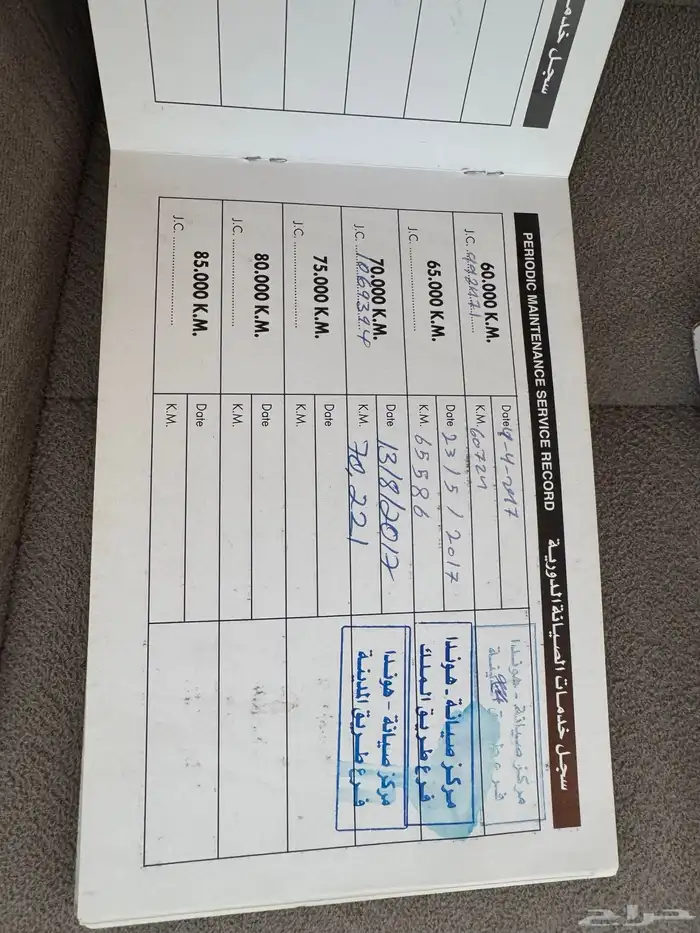 سجل خدمـ
PERIODIC MAINTENANCE SERVICE RECORD سجل خدمات الصيانة الدورية
60.000 K.M.
J.C.
Date 9-4-2017
K.M. 60724
مركز صيانة - هوندا
65.000 K.M.
J.C.
Date 23/5/2017
K.M. 65586
مركز صيانة - هوندا
فرع طريق الملك
70.000 K.M.
J.C. 1069394
Date 13/8/2017
K.M. 70,221
مركز صيانة - هوندا
فرع طريق المدينة
75.000 K.M.
J.C.
Date
K.M.
80.000 K.M.
J.C.
Date
K.M.
85.000 K.M.
J.C.
Date
K.M.
حراج